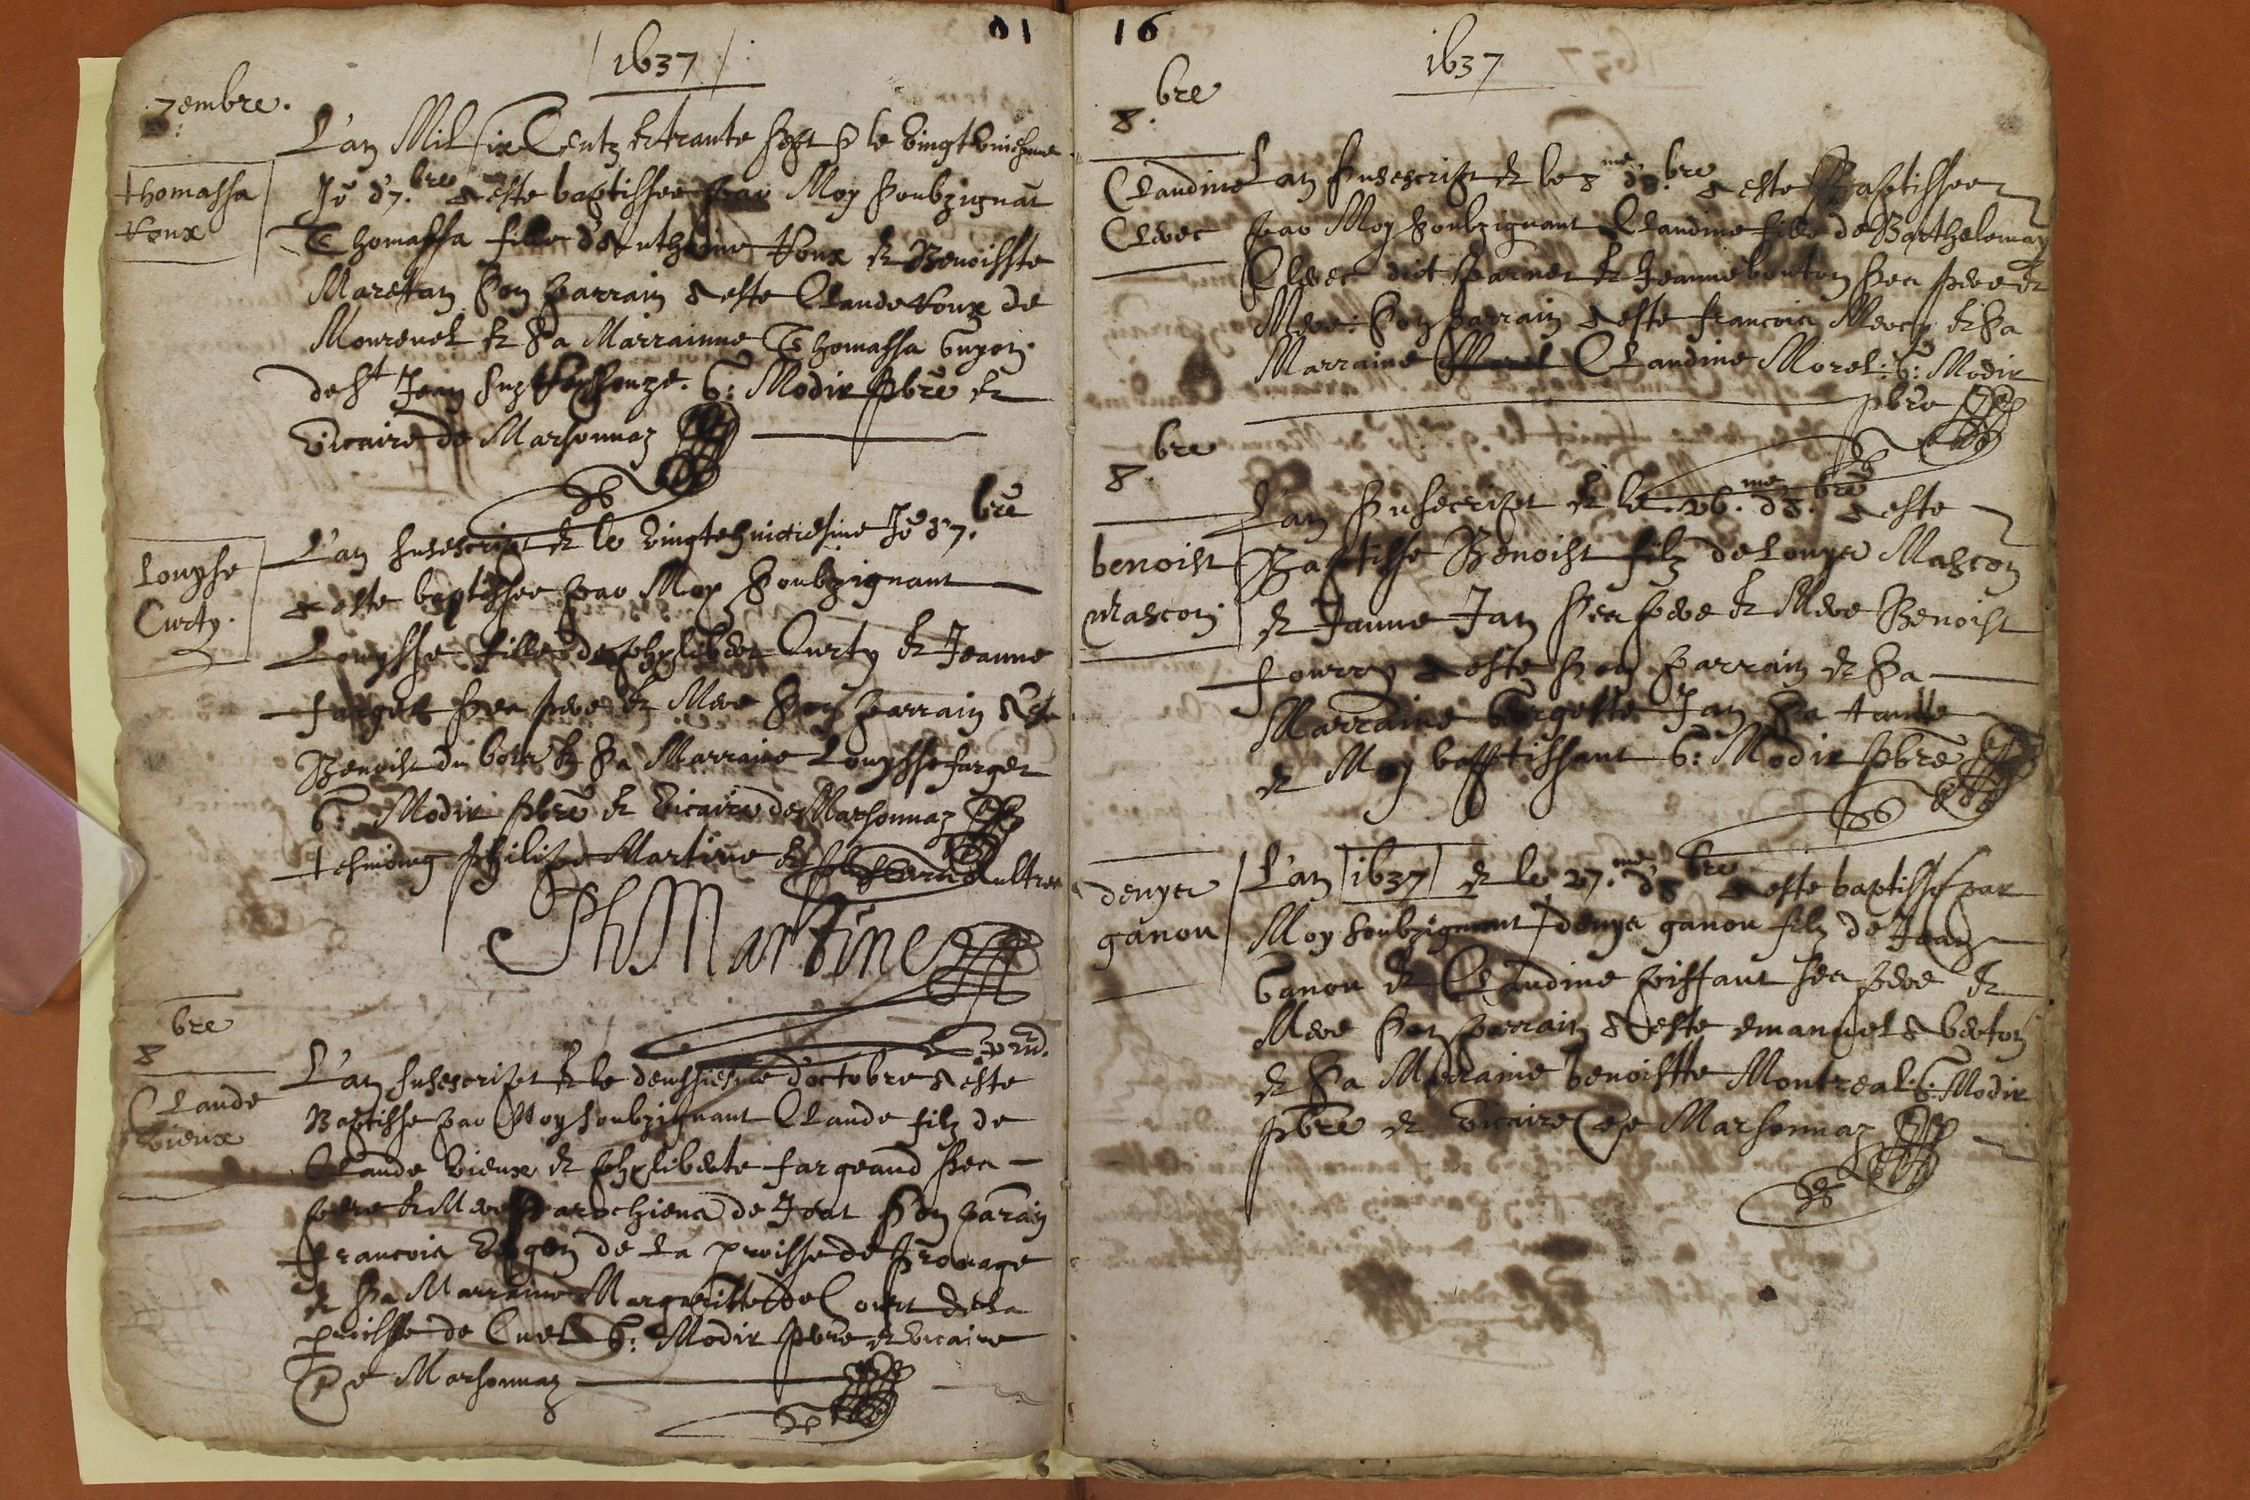 01
1637
7embre.
thomassa
Roux
L'an Mil six Centz et trante sept & le vingt
Jo d'7.bre a este baptissee par Moy soubzignat
Thomassa fille d'Anthoine Roux et Benoiste
Maretan son parrain a este Claude Roux de
et sa Marrainne Thomassa Guyon
de st Jean G: Modir pbre et
vicaire de Marsonnaz
Louyse
Curty.
L'an susescript et le vingtehuictiesme Jo d'7.bre
a este baptissee par Moy Soubzignant
Louysse fille de phylibert Curty et Jeanne
farget ses pere et Mere Son parrain a este
Benoist du bois et sa Marraine Louysse farget
G: Modir pbre et vicaire de Marsonnaz
tesmoing philipe Martine et aultres
Ph Martine
8bre
Claude
vieux
L'an susescript et le deussiesme d'octobre a este
Baptisse par Moy soubzignant Claude filz de
Claude vieux et phyliberte fargeand ses
pere et Mere parochiens de Jeat Son parain
francois de la proisse de
et sa Marraine Margueritte de Court de la
proisse de Cuet G: Modir pbre et vicaire
de Marsonnaz
16
1637
8.bre
Claudine
Clerc
L'an susescript et le 8me d'8.bre a este Baptissee
par Moy soubzignant Claudine fille de Barthelemy
Clerc dict et Jeanne bouton ses pere et
Mere: Son parrain a este francois et sa
Marraine Claudine Morel: G: Modir
pbre
8.bre
benoist
Mascon
L'an susecript et le .26.me d'8.bre a este
Baptisse Benoist filz de Louys Mascon
et Janne Jan ses pere et Mere Benoist
fourry a este son parrain et sa
Marraine Jan sa tante
et Moy baptissant G: Modir pbre
denys
ganou
L'an 1637 et le 27.me d'8bre a este baptisse par
Moy soubzignant denys ganou filz de Jean
Ganou et Claudine pissaut ses pere et
Mere Son parrain a este emanuel
et sa Marraine benoistte Montreal: G: Modir
pbre et vicaire de Marsonnaz